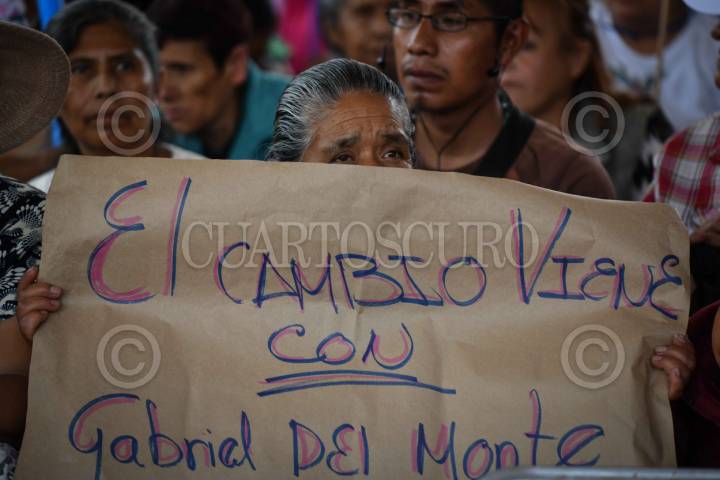 El CAMBIO Viene
CON
Gabriel DEl Monte
CUARTOSCURO